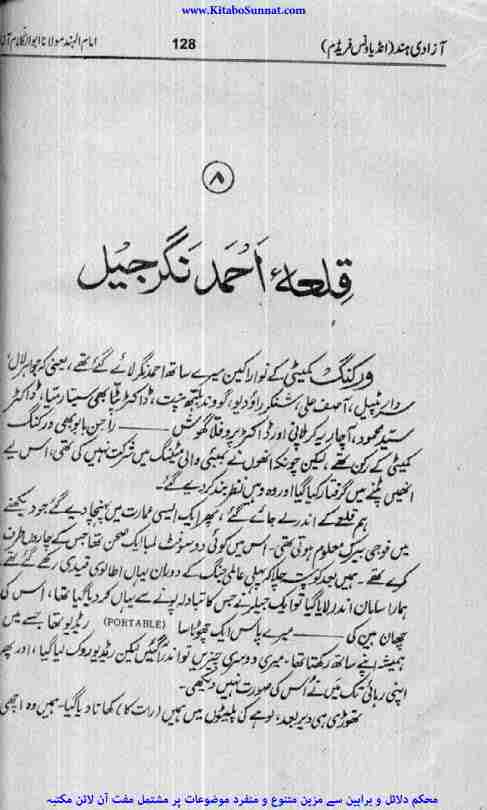 www.KitaboSunnat.com
آزادی ہند (انڈیا ونس فریڈم) 128 امام الہند مولانا ابوالکلام آزاد
۸
قلعۂ اَحمَد نَگر جیل
ورکنگ کمیٹی کے نو اراکین میرے ساتھ احمد نگر لائے گئے تھے، یعنی کہ جواہر لال،
سردار پٹیل، آصف علی، شنکر راؤ دیو، گووند بلبھ پنت، ڈاکٹر پٹابھی سیتا رمیا، ڈاکٹر
سید محمود، آچاریہ کرپلانی اور ڈاکٹر پروفلا گھوش ــــــ راجن بابو بھی ورکنگ
کمیٹی کے رکن تھے، لیکن چونکہ انھوں نے بمبئی والی میٹنگ میں شرکت نہیں کی تھی، اس لیے
انھیں پٹنے میں گرفتار کیا گیا اور وہ وہیں نظر بند کر دیے گئے۔
ہم قلعے کے اندر لے جائے گئے، پھر ایک ایسی عمارت میں پہنچا دیے گئے جو دیکھنے
میں فوجی بیرک معلوم ہوتی تھی۔ اس میں کوئی دو سو فٹ لمبا ایک صحن تھا جس کے چاروں طرف
کمرے تھے۔ ہمیں بعد کو پتہ چلا کہ پہلی عالمی جنگ کے دوران یہاں اطالوی قیدی رکھے گئے تھے
ہمارا سامان اندر لایا گیا تو ایک جیلر نے جس کا تبادلہ پونے سے یہاں کر دیا گیا تھا، اس کی
چھان بین کی ــــــ میرے پاس ایک چھوٹا سا (PORTABLE) ریڈیو تھا جسے میں
ہمیشہ اپنے ساتھ رکھتا تھا۔ میری دوسری چیزیں تو اندر آ گئیں لیکن ریڈیو روک لیا گیا، اور پھر
اپنی رہائی تک میں نے اُس کی صورت نہیں دیکھی۔
تھوڑی ہی دیر بعد، لوہے کی پلیٹوں میں ہمیں (رات کا) کھانا دیا گیا۔ ہمیں وہ اچھی
محکم دلائل و براہین سے مزین متنوع و منفرد موضوعات پر مشتمل مفت آن لائن مکتبہ